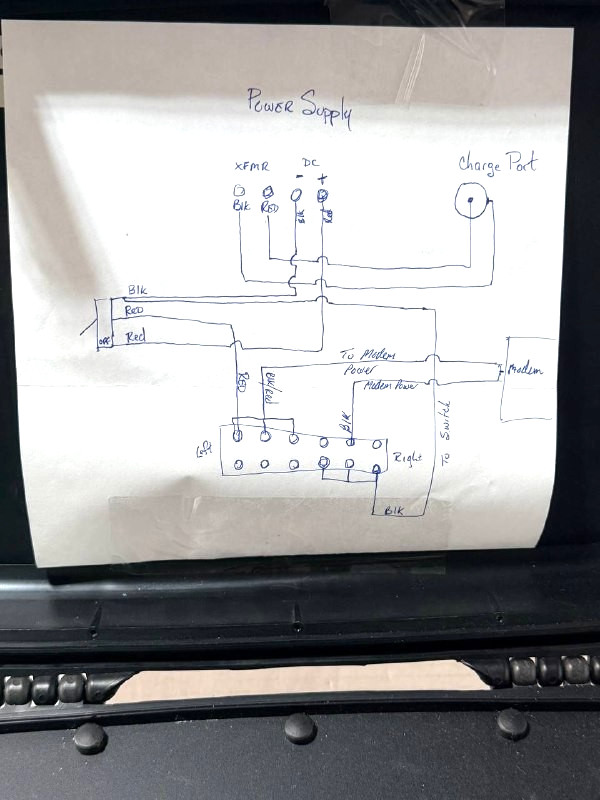 Power Supply
XFMR DC
- +
Charge Port
Blk RED Blk Red
Blk
RED
OFF Red
To Modem
Power
Modem
Modem Power
RED Blk/Red Blk To Switch
Left Right
Blk